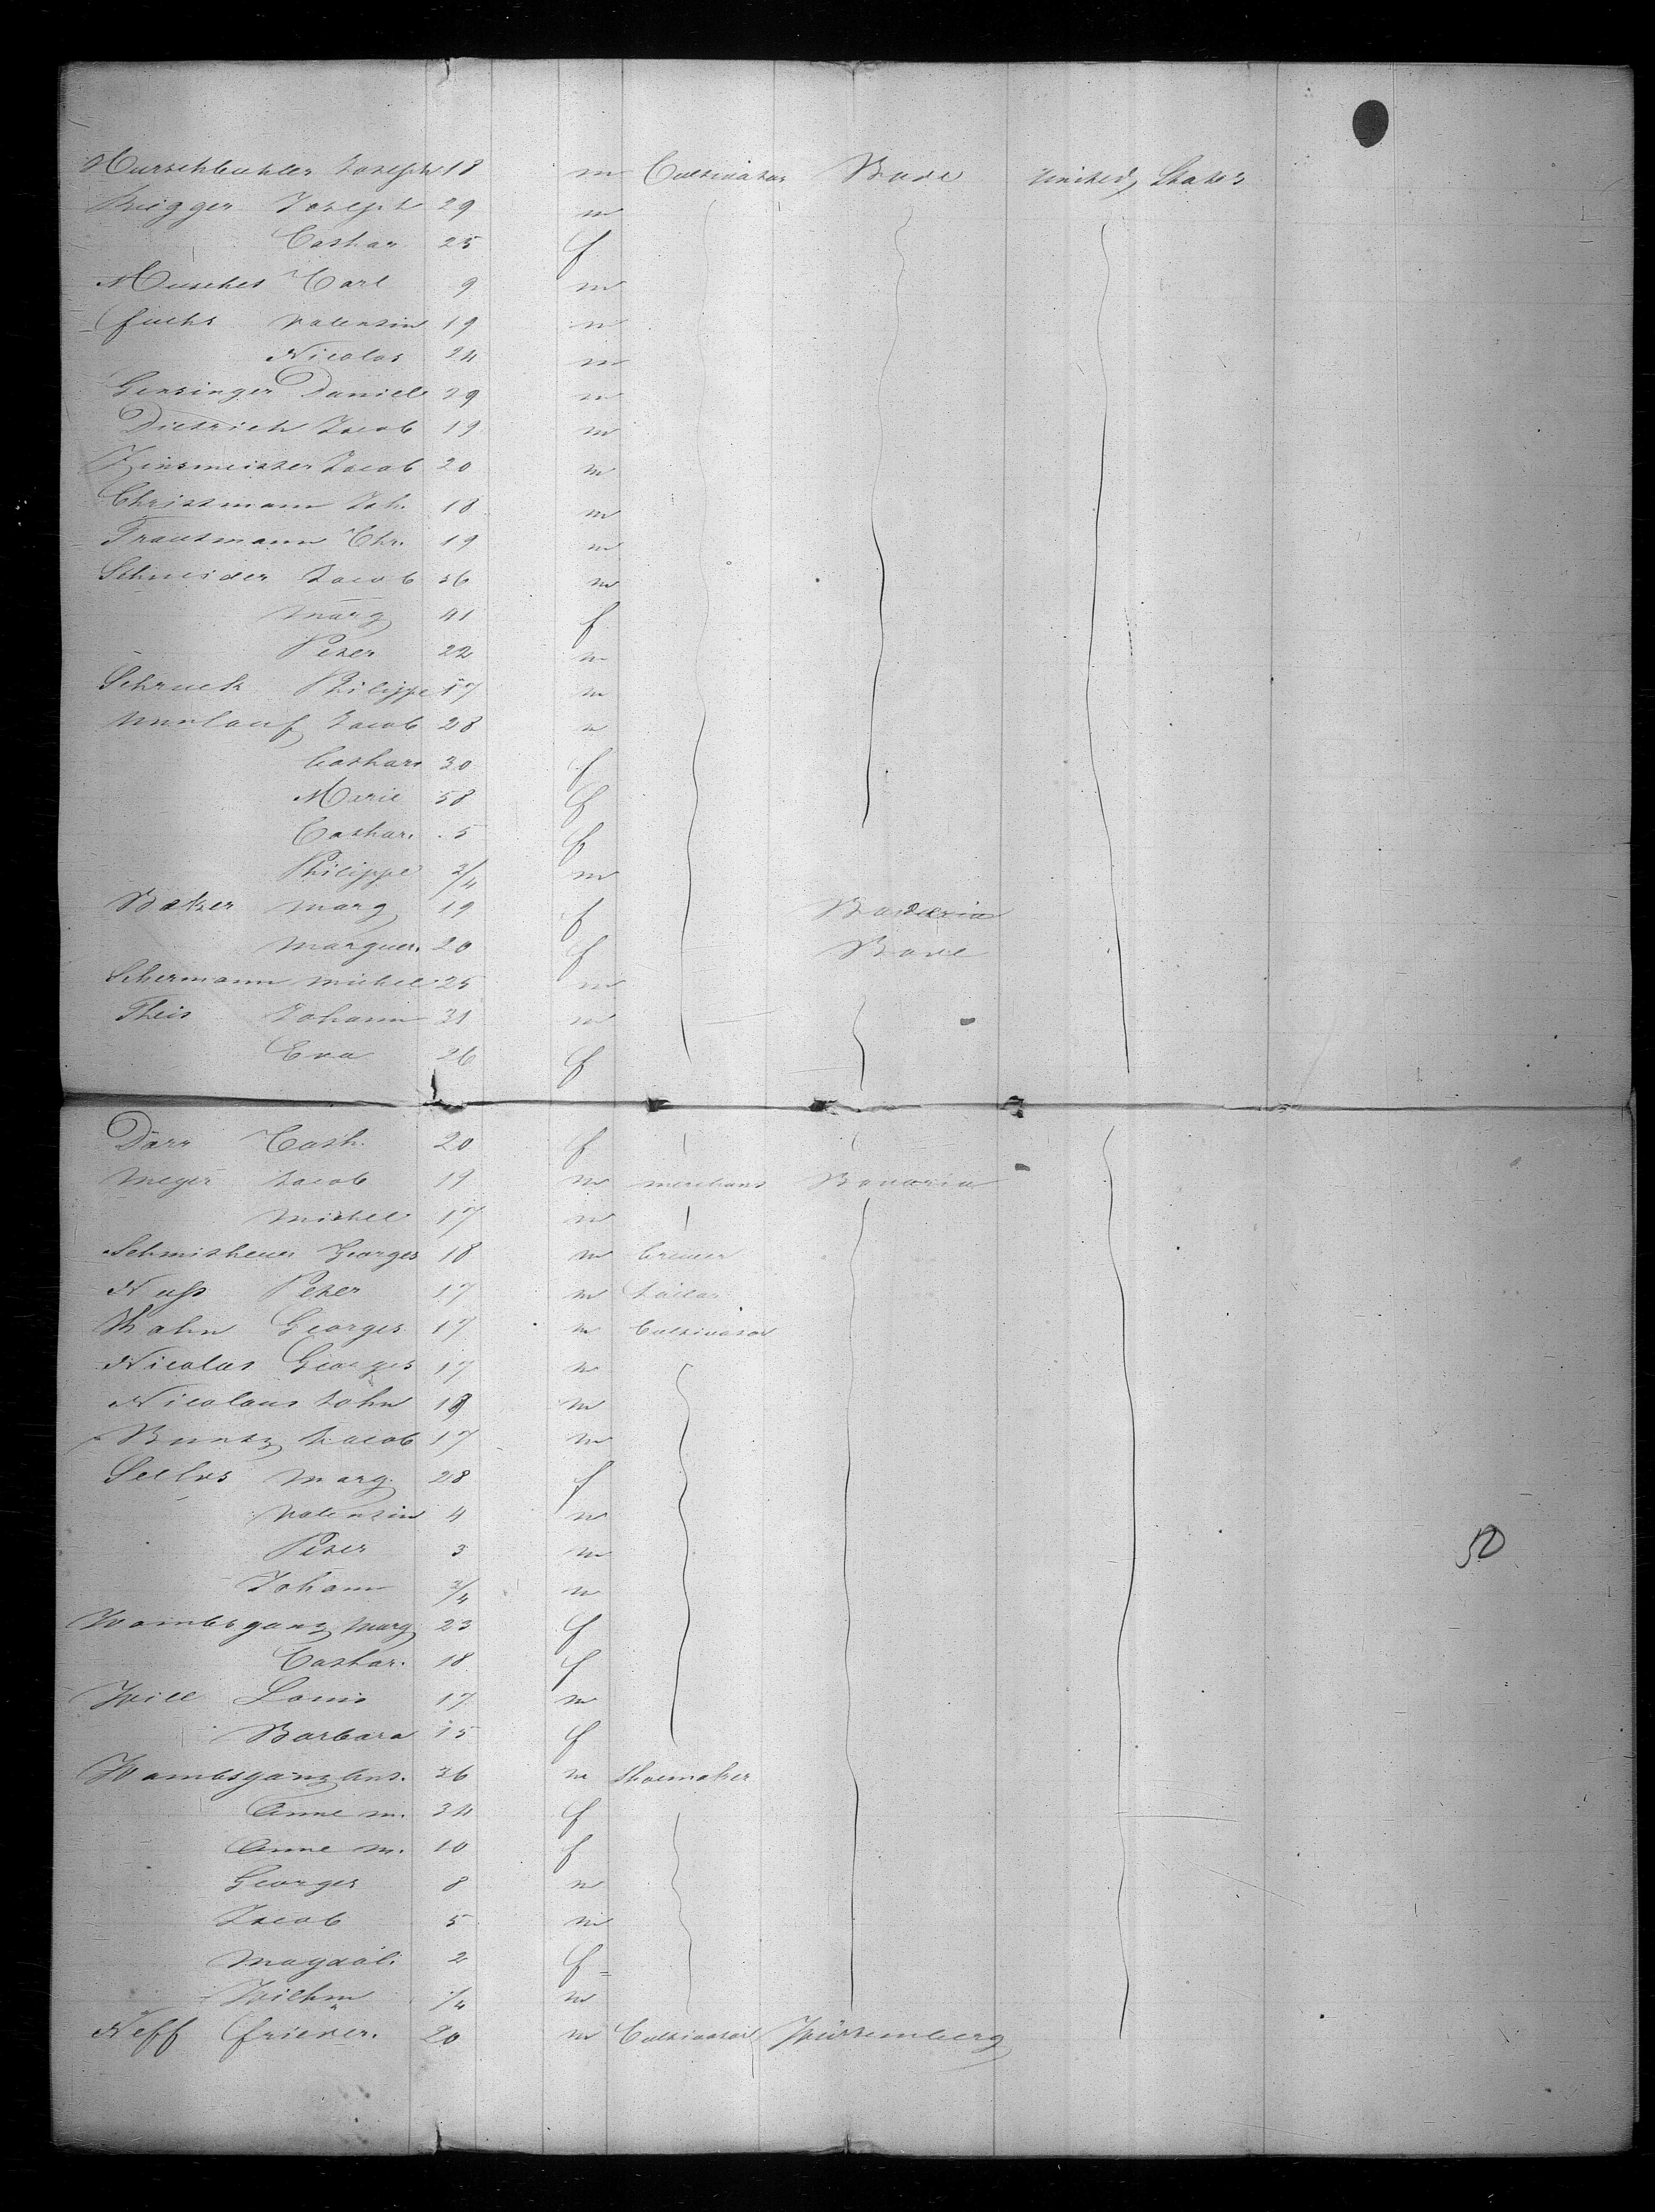 Hurschbuhler Joseph 18 m Cultivator Bade United States
Rugger Joseph 29 m
Cathar 25 f
Muschet Carl 9 m
Fuchs Valentin 19 m
Nicolas 24 m
Gensinger Daniel 29 m
Dietrich Jacob 19 m
Zinsmeister Jacob 20 m
Christmann Joh. 18 m
Trautmann Chr. 19 m
Schneider Jacob 56 m
Marg 41 f
Peter 22 m
Schruck Philippe 17 m
Umlauf Jacob 28 m
Cathar. 30 f
Merie 58 f
Cathar. 5 f
Philippe 3/4 m
Baker Marg 19 f Bavaria
Marguer. 20 f Bade
Schermann Michel 25 m
Theis Johann 31 m
Eva 26 f
Dörr Cath. 20 f
Meyer Jacob 19 m merchant Bavaria
Michel 17 m
Schmitheuer Georges 18 m brewer
Nuss Peter 17 m tailor
Kahn Georges 17 m Cultivator
Nicolas Georges 17 m
Nicolaus John 18 m
Buntz Jacob 17 m
Marg. 28 f
Valentin 4 m
Peter 3 m
Johann 3/4 m
Wambsganz Marg 23 f
Cathar. 18 f
Will Louis 17 m
Barbara 15 f
Wambsganz Ant. 36 m Shoemaker
Anne m. 34 f
Anne m. 10 f
Georges 8 m
Jacob 5 m
Magdal. 2 f
Wilhm 1/4 m
Neff Frieder. 20 m Cultivator Würtemberg
50